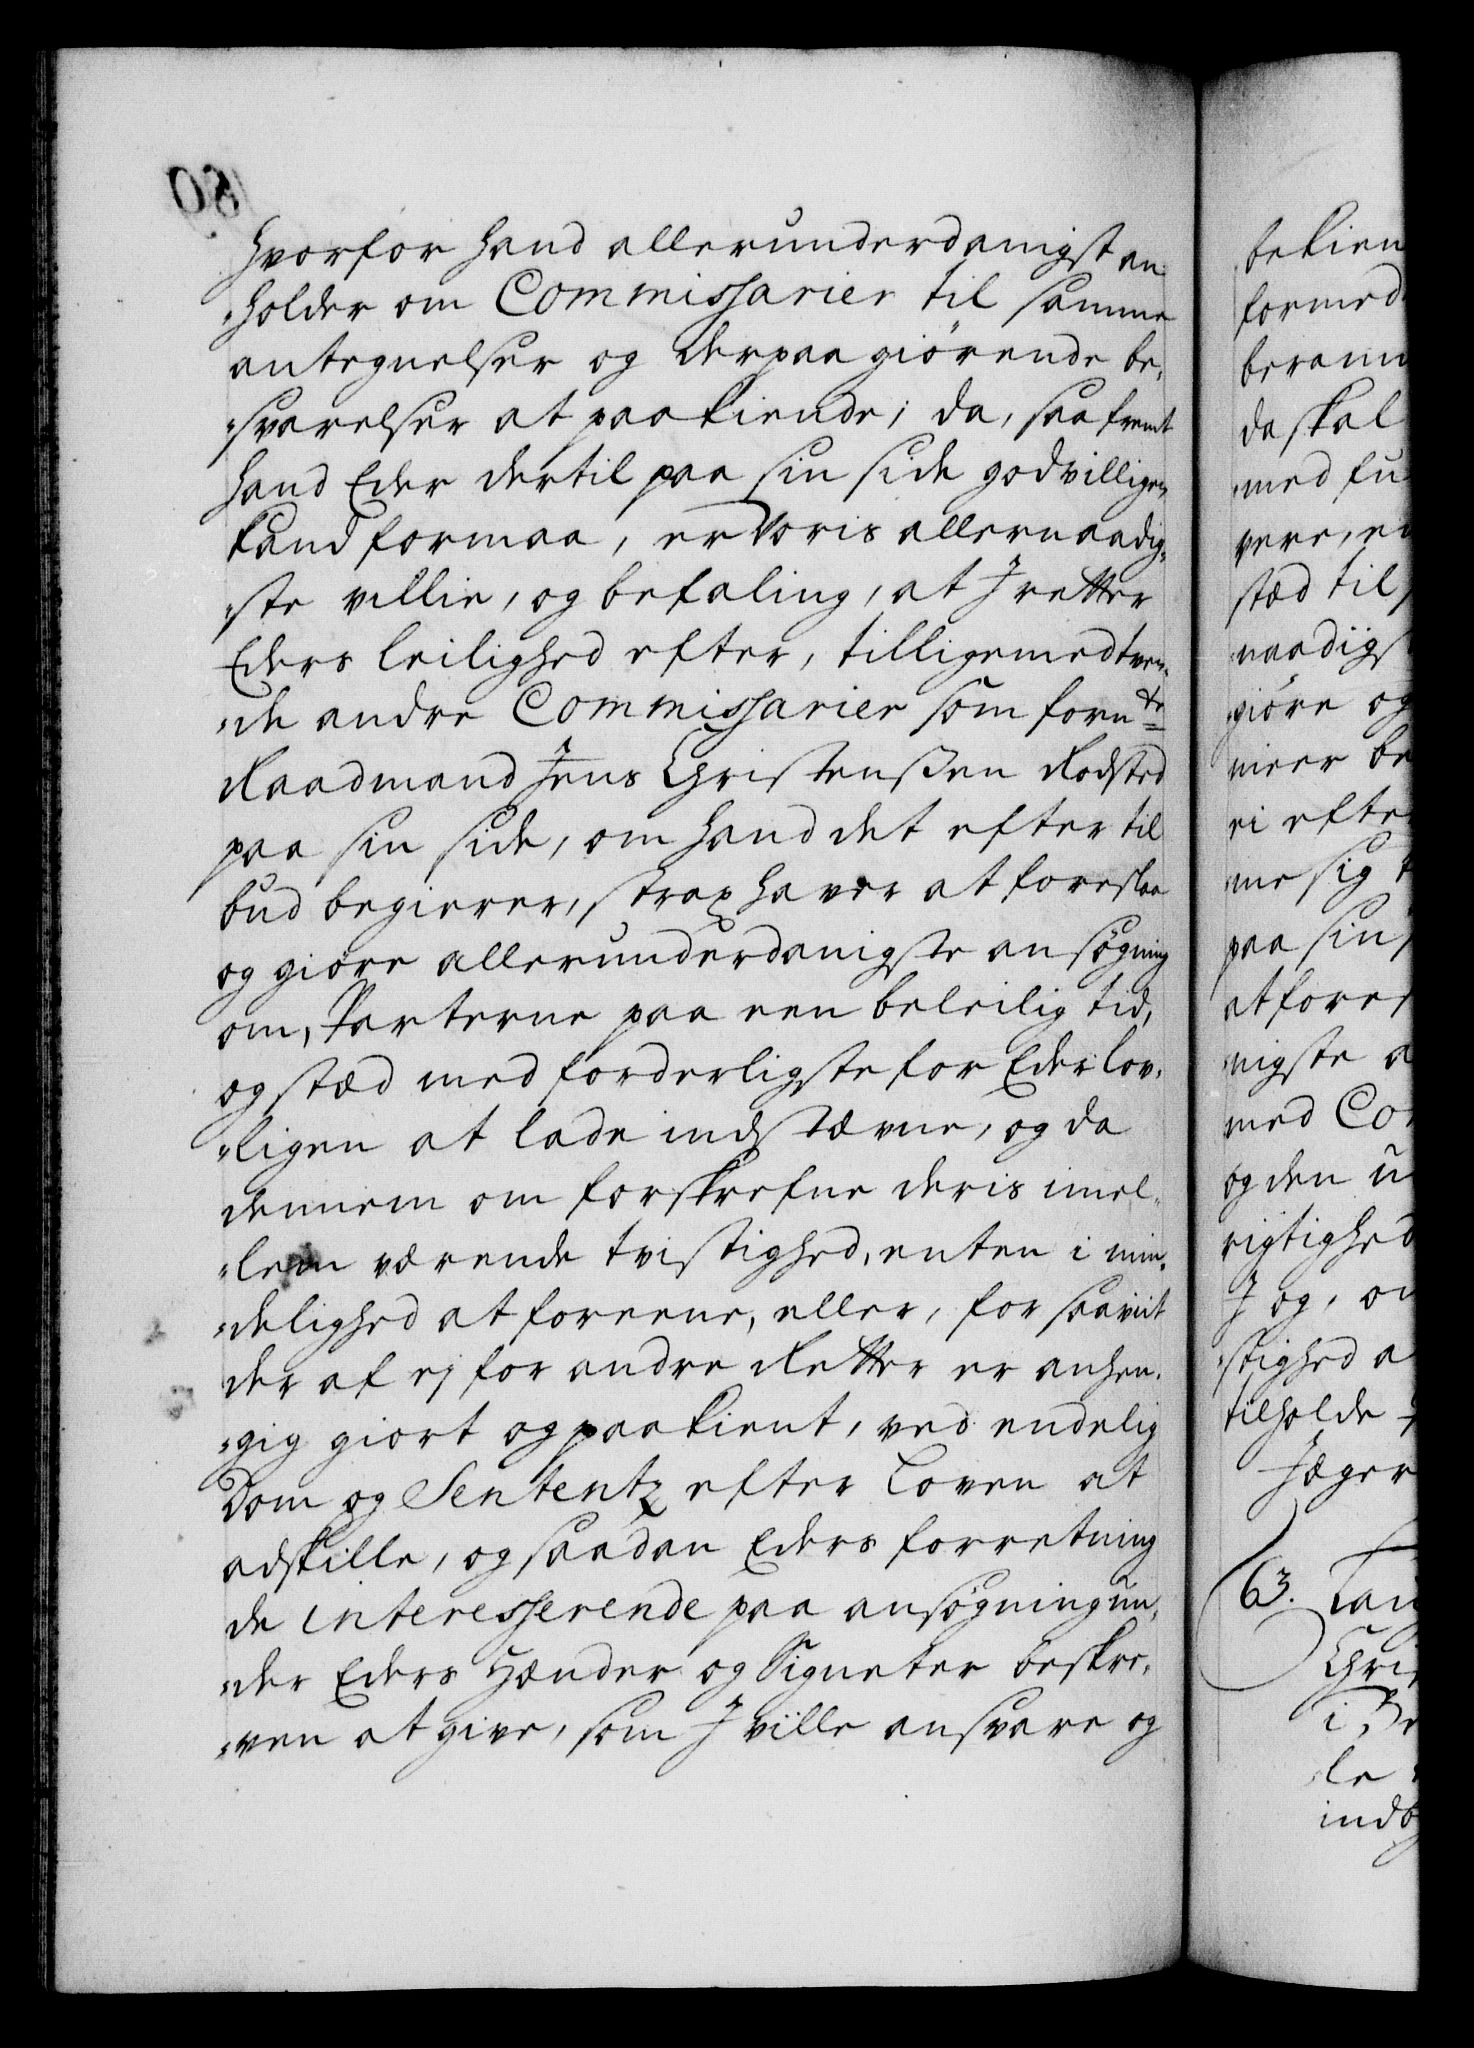 hvorfor hand allerunderdanigst an-
"holder om Commissarier til samme
antegnelser og derpaa giörende be-
"svarelser at paakiende; da, saafremt
hand Eder dertil paa sin side godvilligen
kand formaa, er Voris allernaadig-
"ste villie, og befaling, at I retter
Eders leilighed efter, tilligemed tven-
"de andre Commissarier som fornte
Raadmand Jens Christenßen Rodsted
paa sin side, om hand det efter til
bud begierer, strax haver at foreslaa
og giöre allerunderdanigste ansøgning
om, Parterne paa een beleilig tid,
og stæd med forderligste for Eder lov-
"ligen at lade indstævne, og da
dennem om forskrefne deris imel-
"lem værende tvistighed, enten i min-
"delighed at foreene, eller, for saavit
der af ej for andre Retter er anhen-
"gig giort og paakient, ved endelig
Dom og Sententz efter Loven at
adskille, og saadan Eders forretning
de interesserende paa ansøgning un-
"der Eders Hænder og Signeter beskre-
"ven at give, som I ville ansvare og
bekien
formed
beram
da skal
med fu
vere, en
stæd til
naadigs
giöre og
meer be
ei efte
me sig
paa sin
at fores
nigste a
med Co
og den u
rigtighed
I og, om
stighed a
tilholde
Jæger
63.
Chri
i
le
indb